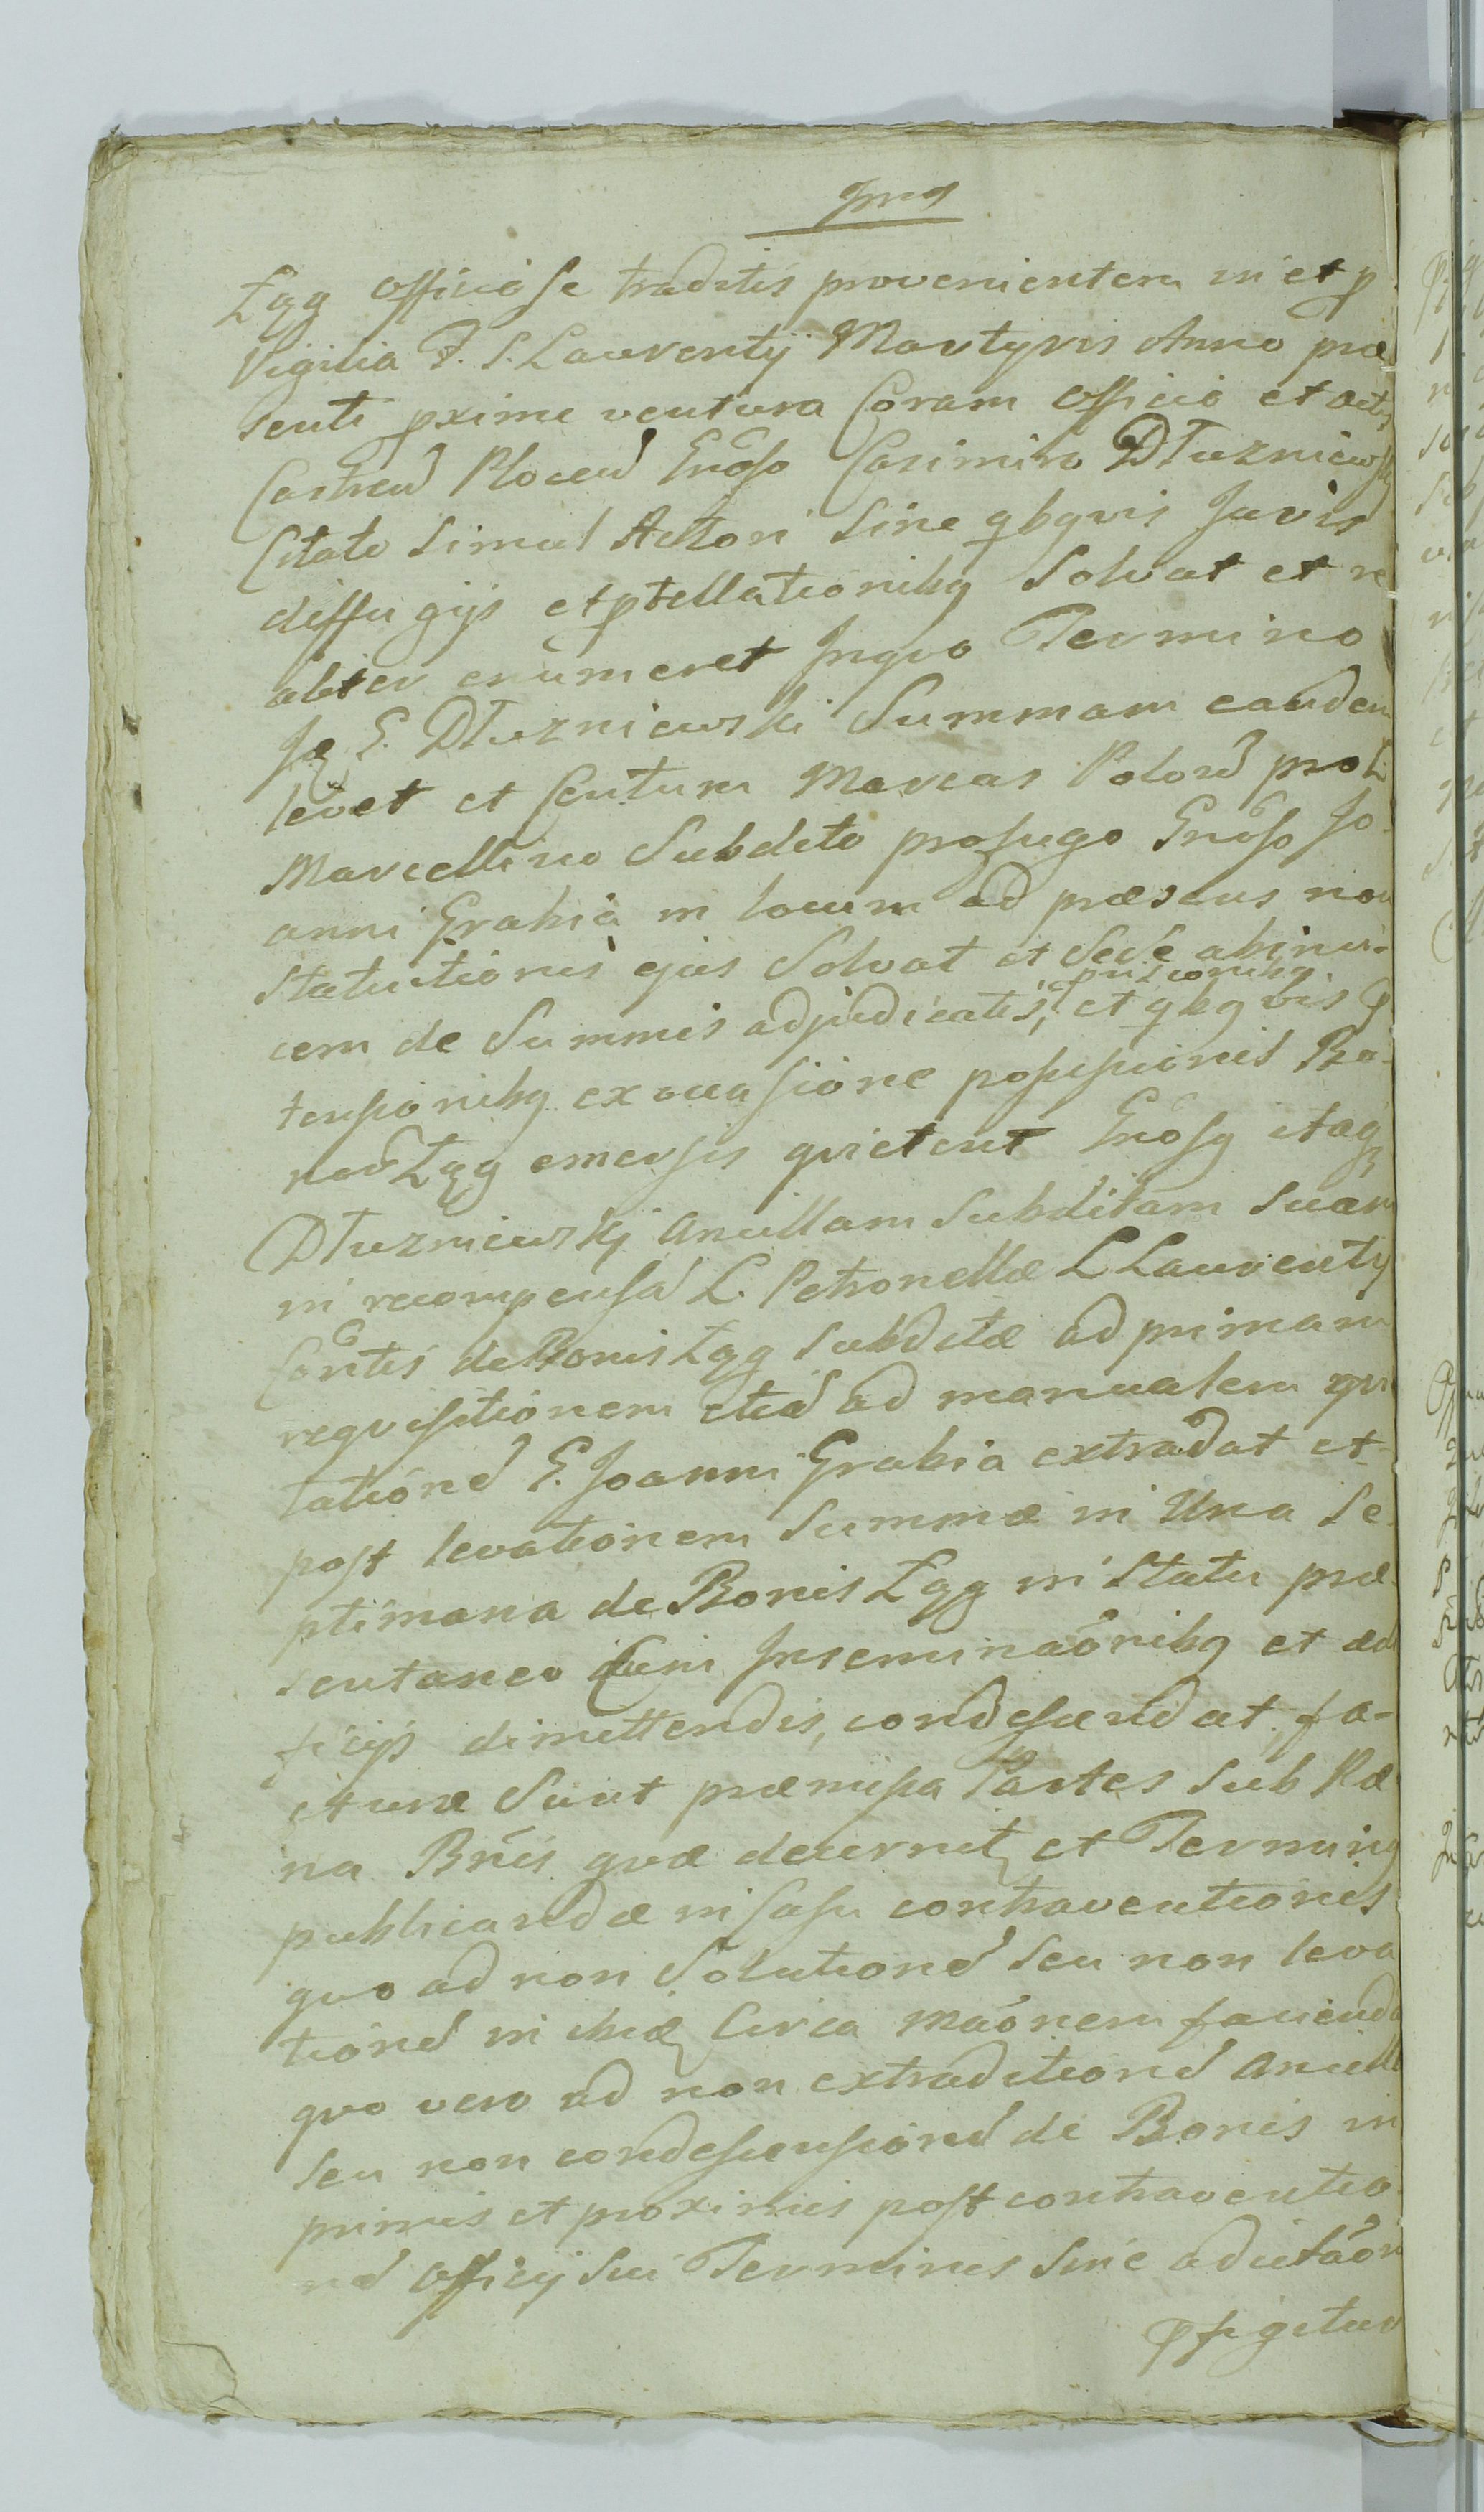 Łęg officiose traditis provenientem in et p
Vigilia F. S. Laurentij Martyris Anno præ
senti pxime ventura Coram Officio et actis
Castren Plocen Gnoso Casimiro Dłuzniewski
Citato Simul Actori Sine qbqvis Juris
diffugijs et ptellationibq Solvat et re
aliter enumeret Inqvo Termino
Je G. Dłuzniewski Summam eandem
levet et Centum Marcas Polon pro L
Marcellino Subdito profugo Gnoso Jo-
anni Grabia in locum ad præsens non
Statuitionis ejus Solvat et Sese abinvi-
cem de Summis adjudicatis, et qbqvis p
tensionibq ex occasione possessionis Bo-
nor Łęg emersis qvietent Gnosq itaq
Dłuzniewskj Ancillam Subditam Suam
in recompensa L. Petronellæ L Laurentij
Contis de Bonis Łęg Subditæ ad primam
reqvisitionem etia ad manualem qvi
tation G. Joanni Grabia extradat et
post levationem Summæ in Una Se-
ptimana de Bonis Łęg in Statu præ-
sentaneo Cum Inseminaonibq et ædi
ficijs dimittendis, condescendat, fa-
cturæ Sunt præmissa Partes Sub Pæ
na Bnis qvæ decernit et Terminq
publicandæ in Casu contraventionis
qvo ad non Solution Seu non leva
tion in Circa Maonem faciend
qvo vero ad non extradition Ancill
Seu non condescension de Bonis in
primis et proximis post contraventio
n Officij Sui Terminis Sine adcitaon
pfigitur